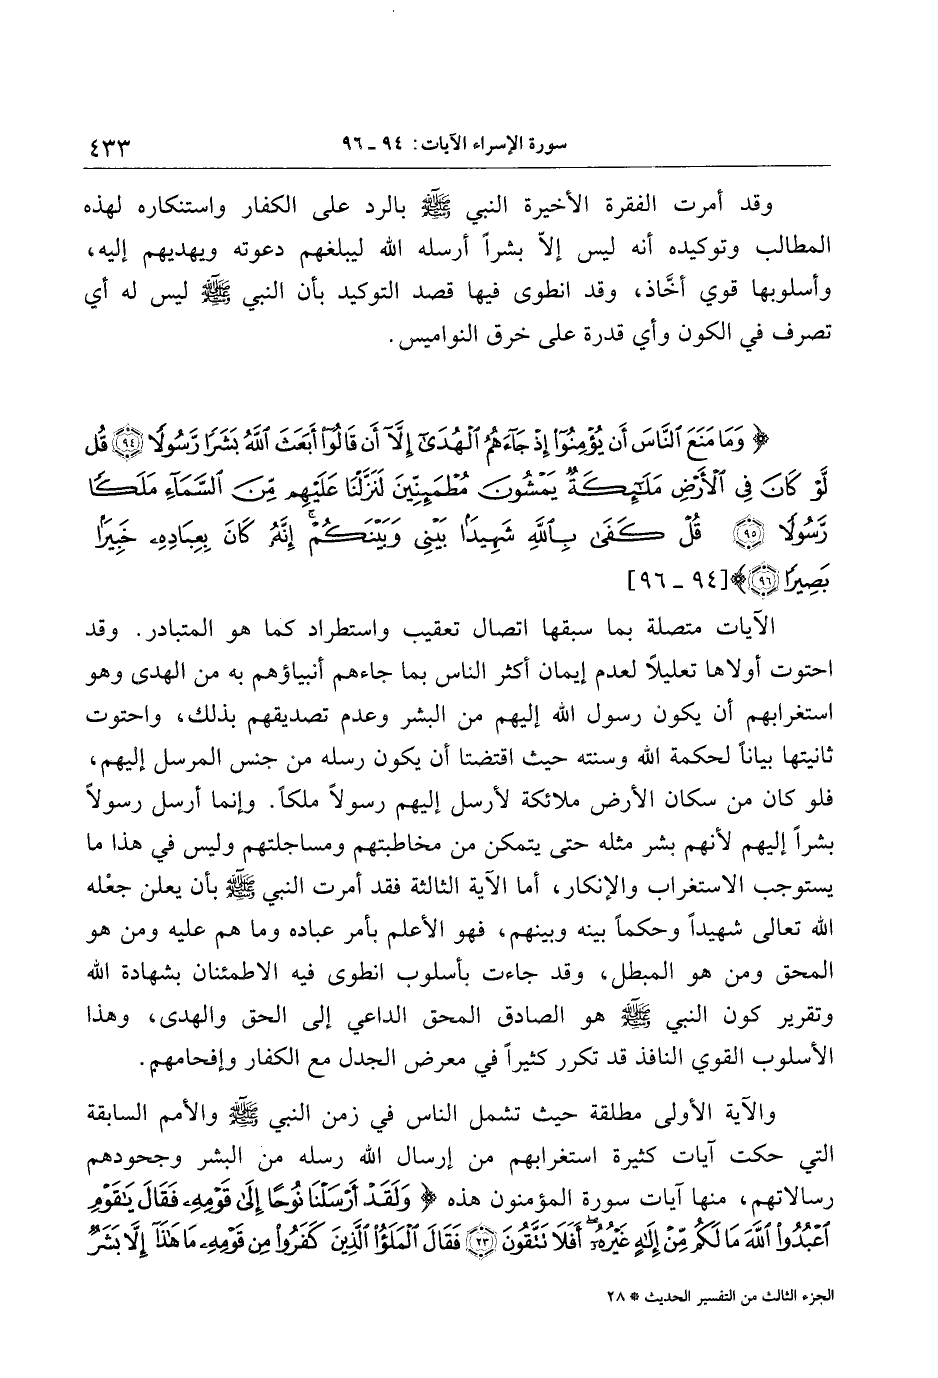 سورة الإسراء الآيات: ٩٤ ـ ٩٦ ٤٣٣
وقد أمرت الفقرة الأخيرة النبي ﷺ بالرد على الكفار واستنكاره لهذه
المطالب وتوكيده أنه ليس إلاّ بشراً أرسله الله ليبلغهم دعوته ويهديهم إليه،
وأسلوبها قوي أخَّاذ، وقد انطوى فيها قصد التوكيد بأن النبي ﷺ ليس له أي
تصرف في الكون وأي قدرة على خرق النواميس.
﴿ وَمَا مَنَعَ ٱلنَّاسَ أَن يُؤْمِنُوٓا۟ إِذْ جَآءَهُمُ ٱلْهُدَىٰٓ إِلَّآ أَن قَالُوٓا۟ أَبَعَثَ ٱللَّهُ بَشَرًا رَّسُولًا ﴿٩٤﴾ قُل
لَّوْ كَانَ فِى ٱلْأَرْضِ مَلَٰٓئِكَةٌ يَمْشُونَ مُطْمَئِنِّينَ لَنَزَّلْنَا عَلَيْهِم مِّنَ ٱلسَّمَآءِ مَلَكًا
رَّسُولًا ﴿٩٥﴾ قُلْ كَفَىٰ بِٱللَّهِ شَهِيدًۢا بَيْنِى وَبَيْنَكُمْ ۚ إِنَّهُۥ كَانَ بِعِبَادِهِۦ خَبِيرًۢا
بَصِيرًا ﴿٩٦﴾ ﴾ [٩٤ ـ ٩٦]
الآيات متصلة بما سبقها اتصال تعقيب واستطراد كما هو المتبادر. وقد
احتوت أولاها تعليلاً لعدم إيمان أكثر الناس بما جاءهم أنبياؤهم به من الهدى وهو
استغرابهم أن يكون رسول الله إليهم من البشر وعدم تصديقهم بذلك، واحتوت
ثانيتها بياناً لحكمة الله وسنته حيث اقتضتا أن يكون رسله من جنس المرسل إليهم،
فلو كان من سكان الأرض ملائكة لأرسل إليهم رسولاً ملكاً. وإنما أرسل رسولاً
بشراً إليهم لأنهم بشر مثله حتى يتمكن من مخاطبتهم ومساجلتهم وليس في هذا ما
يستوجب الاستغراب والإنكار، أما الآية الثالثة فقد أمرت النبي ﷺ بأن يعلن جعْله
الله تعالى شهيداً وحكماً بينه وبينهم، فهو الأعلم بأمر عباده وما هم عليه ومن هو
المحق ومن هو المبطل، وقد جاءت بأسلوب انطوى فيه الاطمئنان بشهادة الله
وتقرير كون النبي ﷺ هو الصادق المحق الداعي إلى الحق والهدى، وهذا
الأسلوب القوي النافذ قد تكرر كثيراً في معرض الجدل مع الكفار وإفحامهم.
والآية الأولى مطلقة حيث تشمل الناس في زمن النبي ﷺ والأمم السابقة
التي حكت آيات كثيرة استغرابهم من إرسال الله رسله من البشر وجحودهم
رسالاتهم، منها آيات سورة المؤمنون هذه ﴿ وَلَقَدْ أَرْسَلْنَا نُوحًا إِلَىٰ قَوْمِهِۦ فَقَالَ يَٰقَوْمِ
ٱعْبُدُوا۟ ٱللَّهَ مَا لَكُم مِّنْ إِلَٰهٍ غَيْرُهُۥٓ ۖ أَفَلَا تَتَّقُونَ ﴿٢٣﴾ فَقَالَ ٱلْمَلَؤُا۟ ٱلَّذِينَ كَفَرُوا۟ مِن قَوْمِهِۦ مَا هَٰذَآ إِلَّا بَشَرٌ
الجزء الثالث من التفسير الحديث * ٢٨